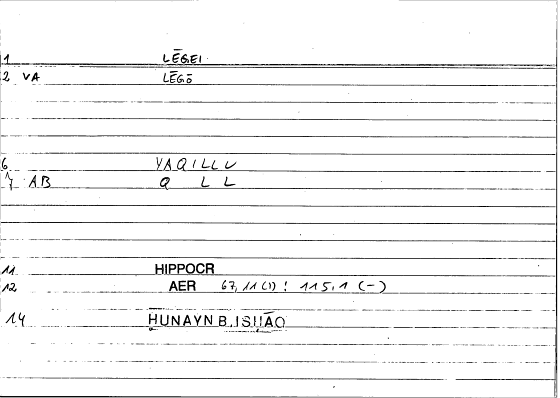 1 LĒGEI
2 VA LĒGŌ
6 YAQILLU
7 AB Q L L
11 HIPPOCR
12 AER 67,11 (1) : 115,1 (-)
14 ḤUNAYN B. ISḤĀQ